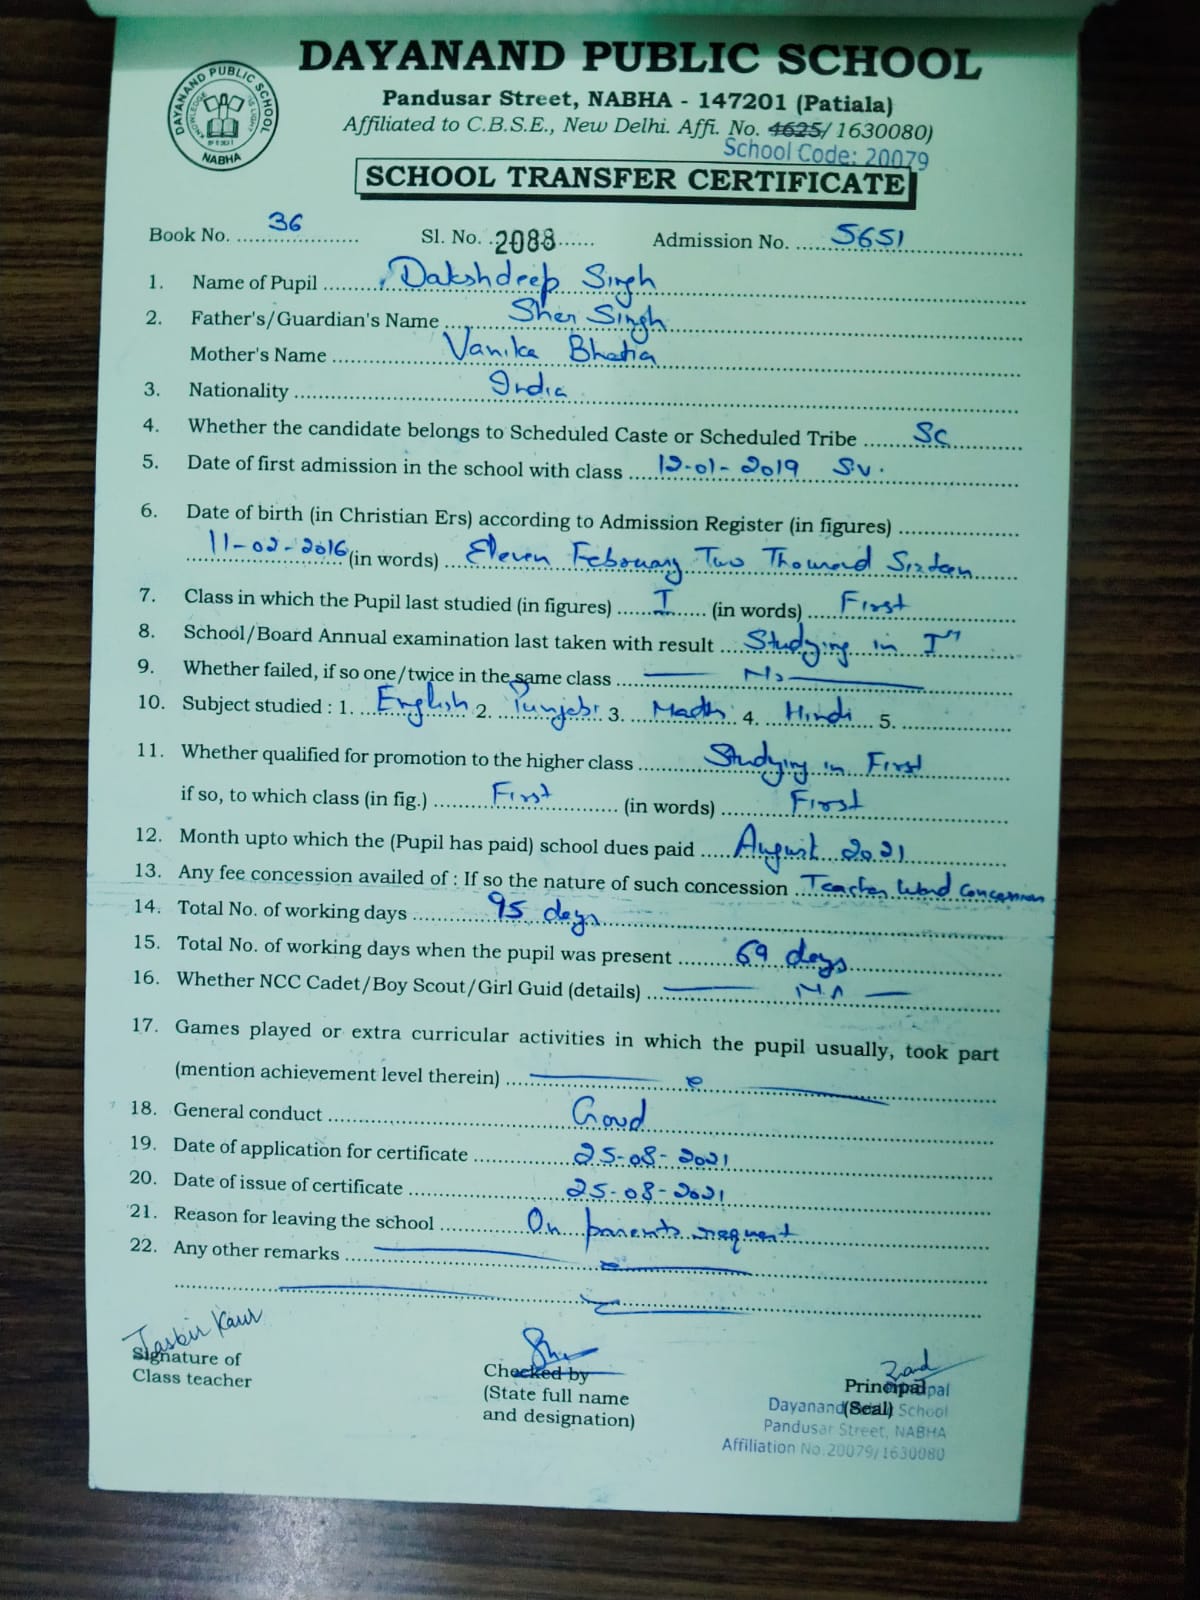 DAYANAND PUBLIC SCHOOL
Pandusar Street, NABHA - 147201 (Patiala)
Affiliated to C.B.S.E., New Delhi. Affi. No. 4625/ 1630080)
School Code: 20079
DAYANAND PUBLIC SCHOOL
NABHA
SCHOOL TRANSFER CERTIFICATE
Book No. 36 Sl. No. 2088 Admission No. 5651
1. Name of Pupil Dakshdeep Singh
2. Father's/Guardian's Name Sher Singh
Mother's Name Vanika Bhatia
3. Nationality India
4. Whether the candidate belongs to Scheduled Caste or Scheduled Tribe SC
5. Date of first admission in the school with class 12-01-2019 S.V.
6. Date of birth (in Christian Ers) according to Admission Register (in figures)
11-02-2016 (in words) Eleven February Two Thousand Sixteen
7. Class in which the Pupil last studied (in figures) I (in words) First
8. School/Board Annual examination last taken with result Studying in Ist
9. Whether failed, if so one/twice in the same class No
10. Subject studied : 1. English 2. Punjabi 3. Math 4. Hindi 5.
11. Whether qualified for promotion to the higher class Studying in First
if so, to which class (in fig.) First (in words) First
12. Month upto which the (Pupil has paid) school dues paid August 2021
13. Any fee concession availed of : If so the nature of such concession Teacher Ward Concession
14. Total No. of working days 95 days
15. Total No. of working days when the pupil was present 69 days
16. Whether NCC Cadet/Boy Scout/Girl Guid (details) NA
17. Games played or extra curricular activities in which the pupil usually, took part
(mention achievement level therein)
18. General conduct Good
19. Date of application for certificate 25-08-2021
20. Date of issue of certificate 25-08-2021
21. Reason for leaving the school On parents request
22. Any other remarks
Jasbir Kaur
Signature of
Class teacher
Checked by
(State full name
and designation)
Principal
(Seal)
Principal
Dayanand School
Pandusar Street, NABHA
Affiliation No.20079/1630080